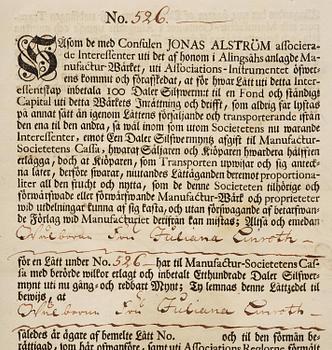 No. 526.
Såsom de med Consulen JONAS ALSTRÖM associera-
de Interessenter uti det af honom i Alingsåhs anlagde Ma-
nufactur-Wärket, uti Associations-Instrumentet öfwers-
ens kommit och förafskedat, at för hwar Lått uti detta Inter-
essentskap inbetala 100 Daler Silfwermt til en Fond och ständigt
Capital uti detta Wärkets Inrättning och drifft, som aldrig får lyftas
på annat sätt än igenom Låttens försäljande och transporterande ifrån
den ena til den andra, så wäl inom som utom Societetens nu warande
Interessenter, emot Een Daler Silfwermynts afgift til Manufactur-
Societetens Cassa, hwaraf Säljaren och Kiöparen hwardera hälfften
erlägga, doch at Kiöparen, som Transporten upwijsar och sig anteck-
na låter, derföre swarar, niutandes Låttäganden deremot proportiona-
liter all den frucht och nytta, som de denne Societeten tilhörige och
förwärfwade eller förwärfwande Manufactur-Wärk och proprieteter
wid utdelningar kunna af sig kasta, och utan förswagande af betarfwan-
de Förlag wid Manufacturiet desfrån kan mistas; Altså och emedan
Wälborne Frú Juliana Cinroth
för en Lått under No. 526 har til Manufactur-Societetens Cas-
sa med berörde wilkor erlagt och inbetalt Etthundrade Daler Silfwer-
mynt uti nu gång- och redbart Myntz Ty lemnas denne Lättzedel til
bewijs, at
Wälborne Frú Juliana Cinroth
således är ägare af bemelte Lått No. och til den förmån be-
rättigad, som här ofwanföre, samt uti Associations Reglorne förmält